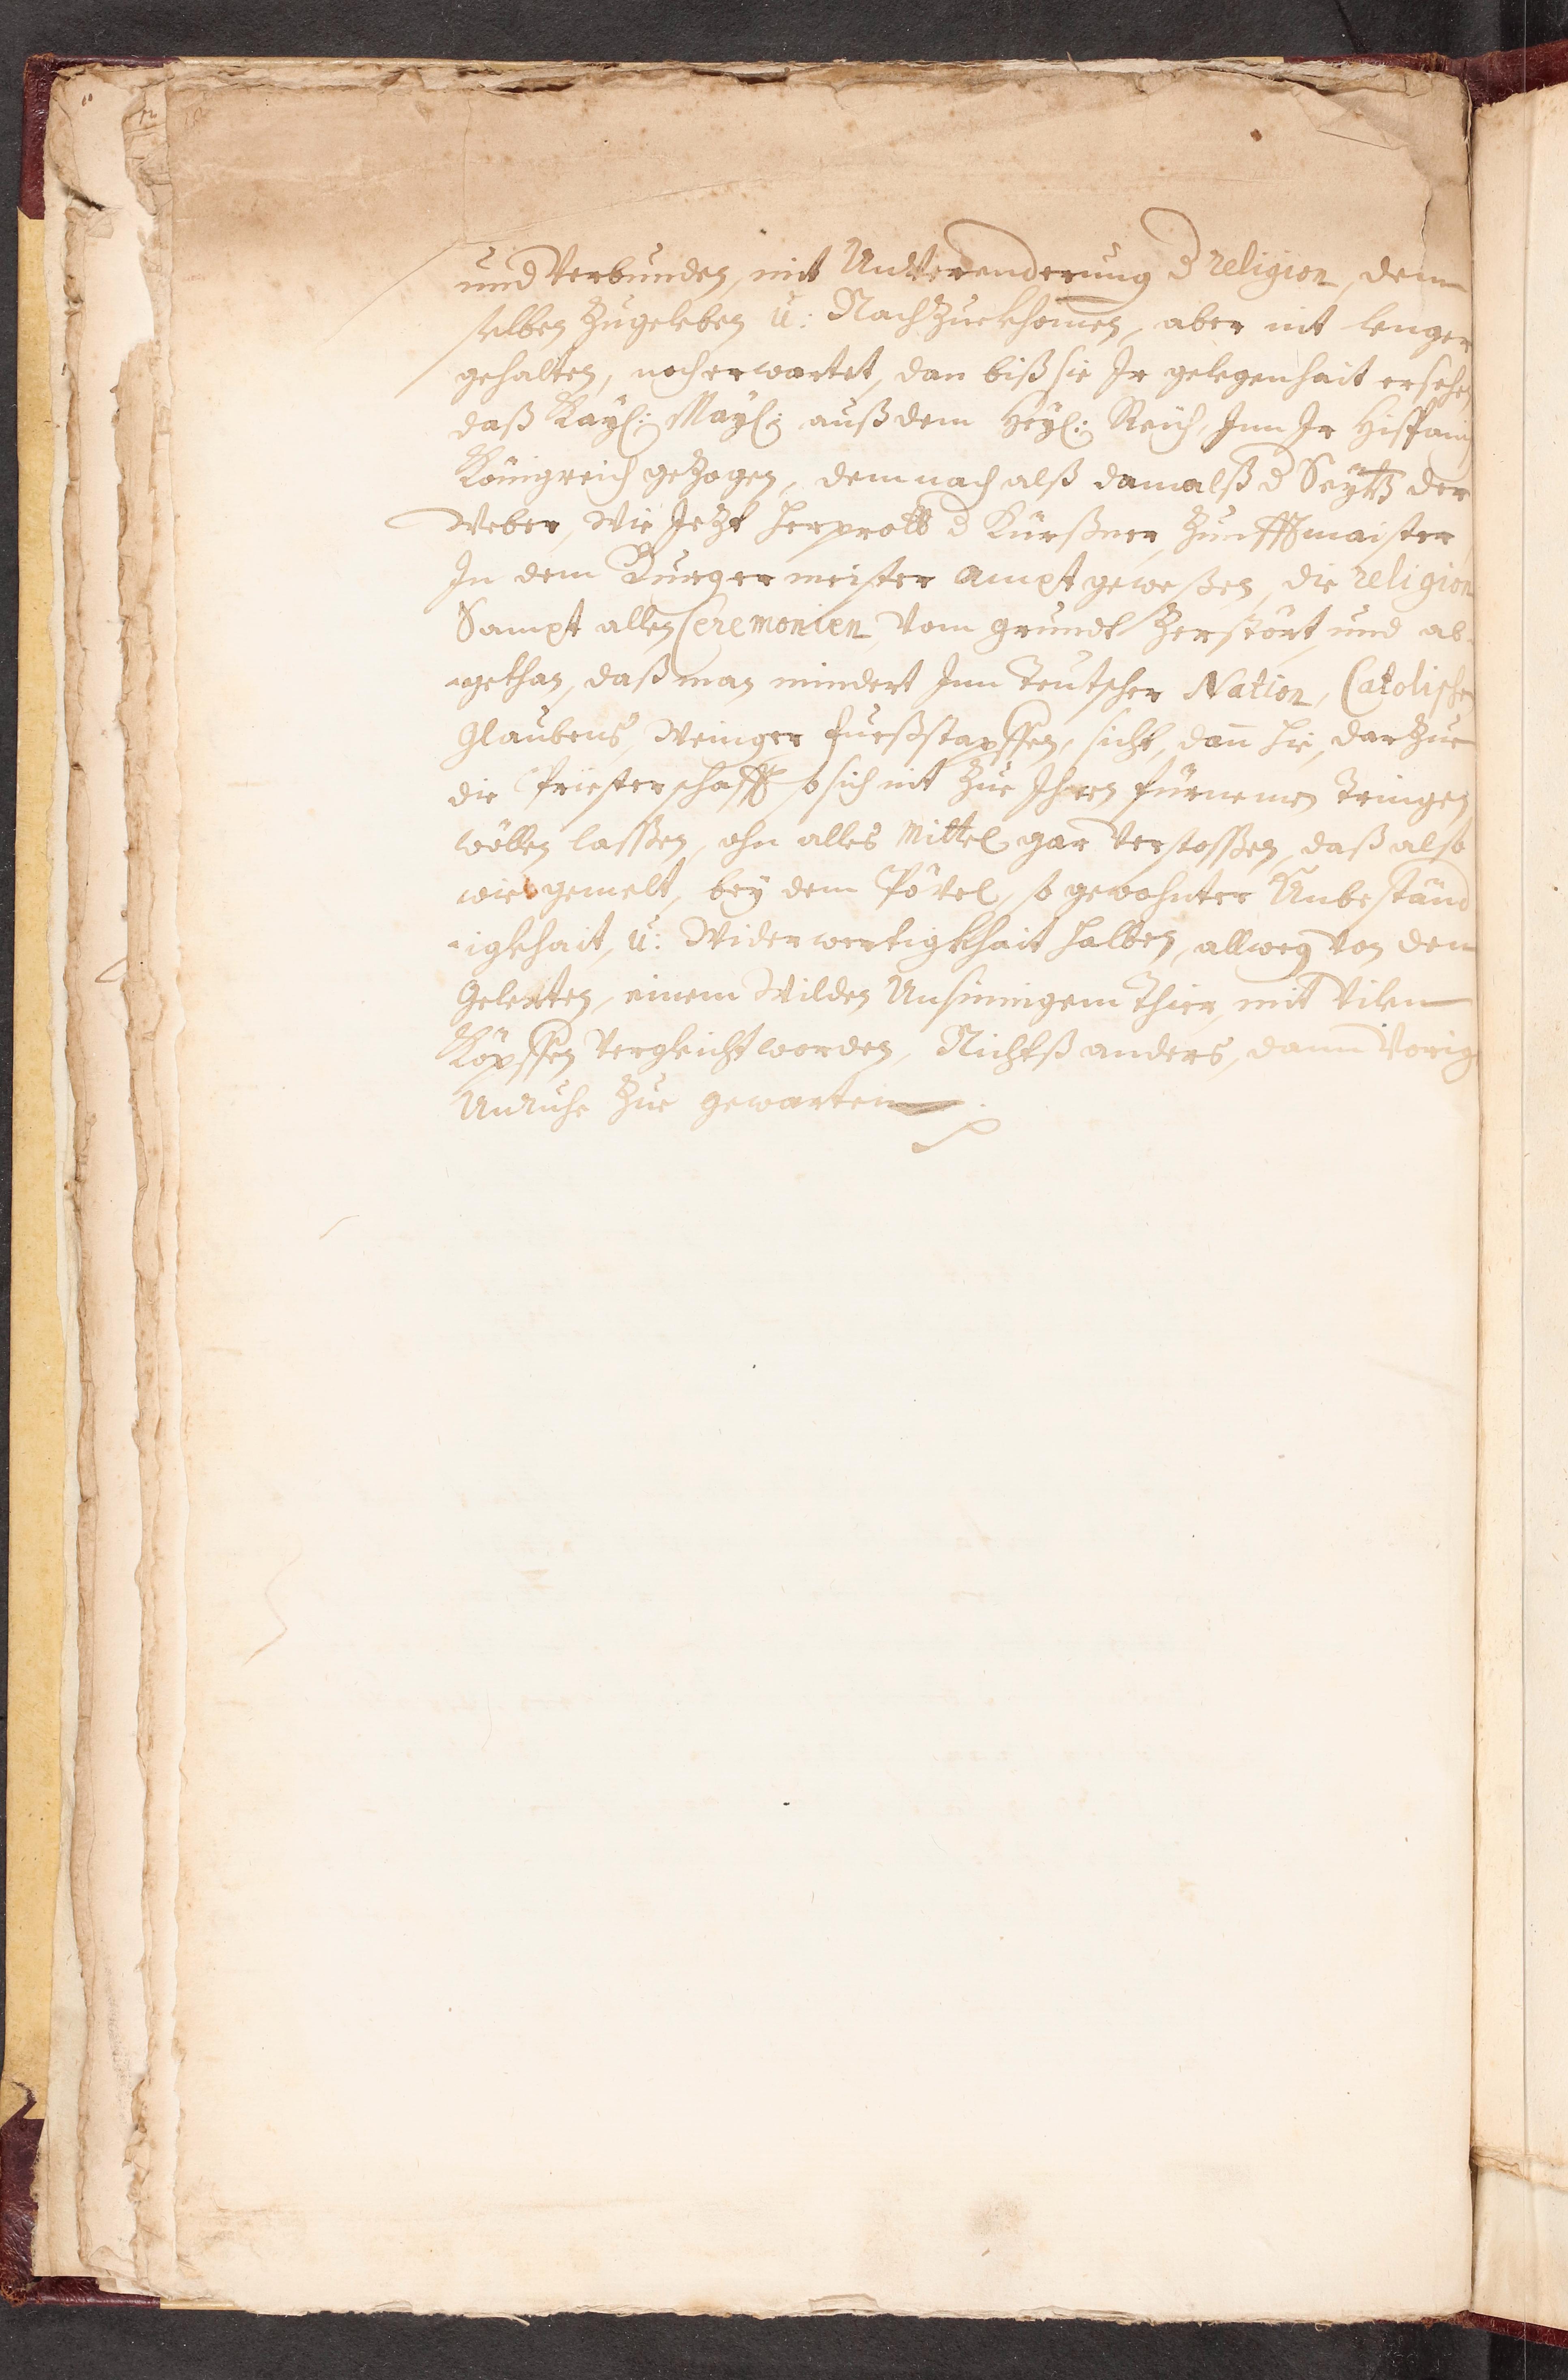 und Verbunden, mit Undterenderung d religion, dem
selben Zugeleben ú: Nachzuekhomen, aber nit lenger
gehalten, noch erwartet, dan biß sie Ir gelegenhait ersehen
daß Kayl: Mayl: auß dem Heyl: Reich, Inn Ir Hispanisch
Königreich gezogen, demnach alß damalß d Seytz der
Weber, Wie Jetzt Herprott d Kürßner, Zunfftmaister
In dem Burgermeister Ampt geweßen, die religion
Sampt allen Ceremonien, Vom grundt Zerstört, und ab-
-gethan, daß man mindert Inn Teutscher Nation, Catolischen
Glaubens, Weniger fueßstapffen, sicht, dañ hie, darzue
die Priesterschafft, so sich nit Zue Ihren fürnemen Tringen
wöllen lasßen, ohn alles Mittel gar Verstosßen, daß also
wie gemelt, bey dem Pövel, so gewohnter Unbeständ
-igkhait, ú: Widerwertigkhait halben, allweg Von den
Gelerten, einem Wilden Unsinnigem Thier, mit Vilen
Köpffen Vergleicht worden, Nichtß anders, dann Vorig
Unruhe Zue gewarten